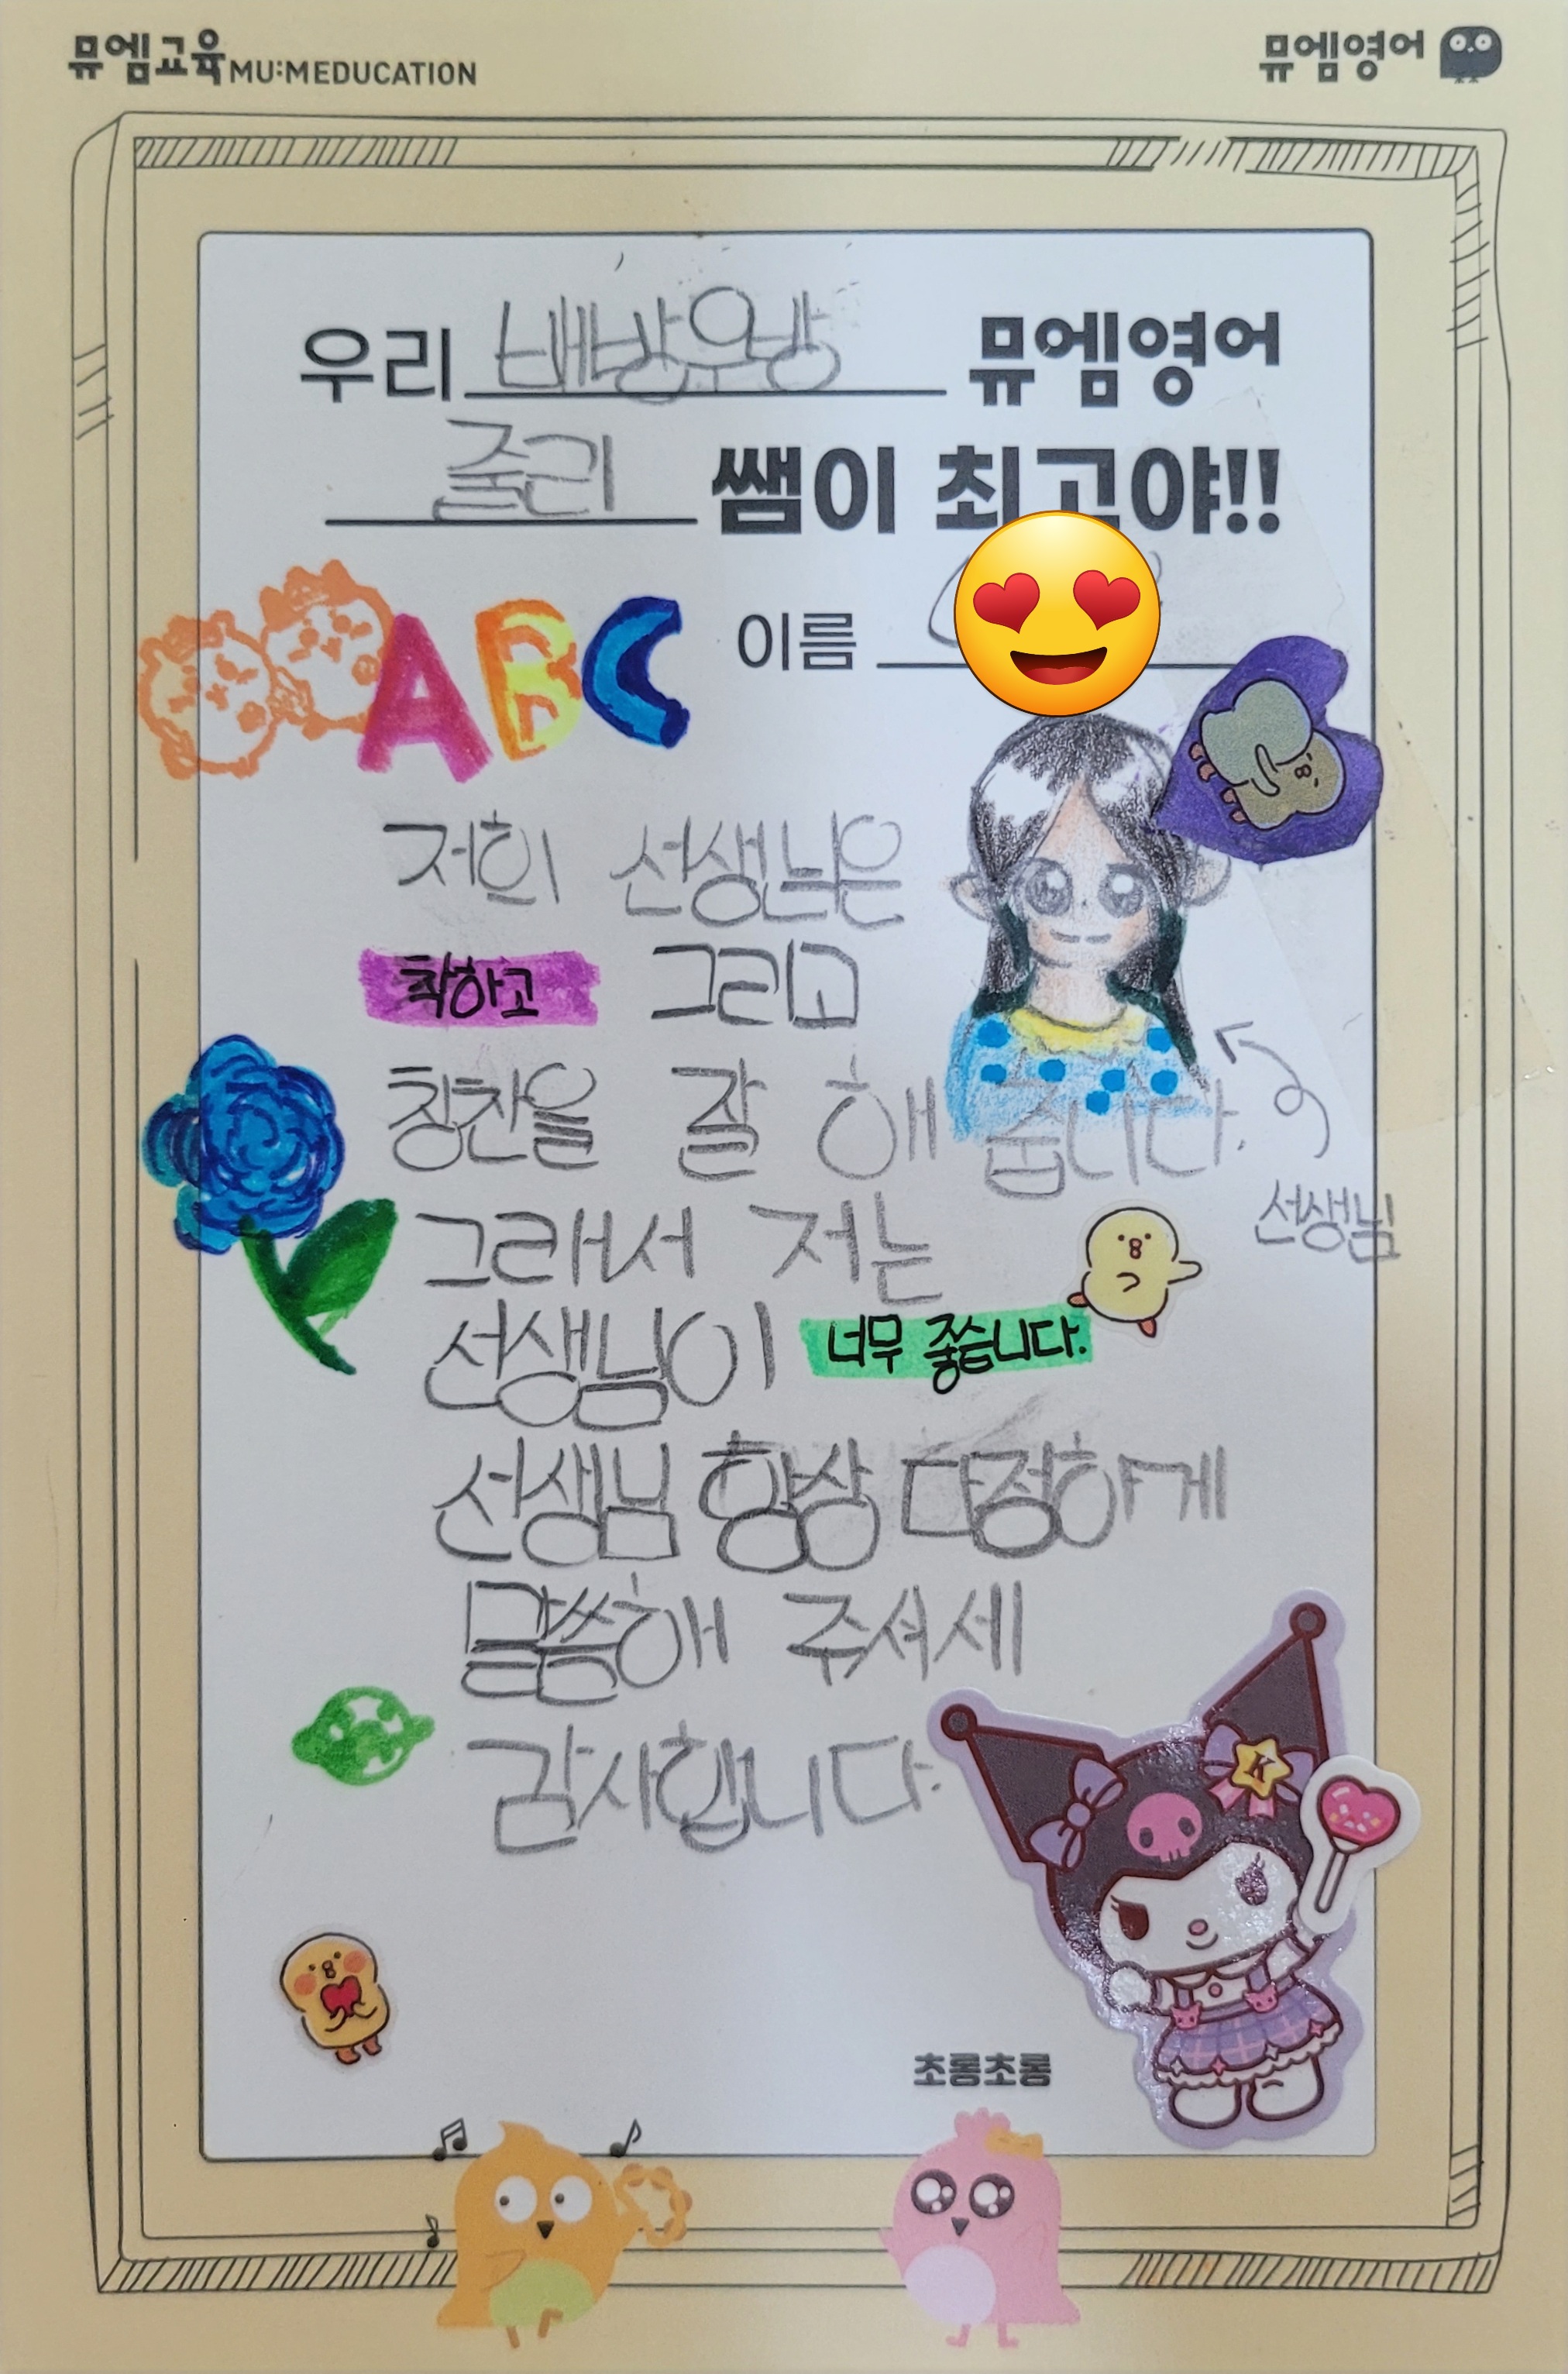 뮤엠교육 MU:M EDUCATION
뮤엠영어
우리 배방우방 뮤엠영어
줄리 쌤이 최고야!!
이름
ABC
저희 선생님은
착하고 그리고
칭찬을 잘 해 줍니다.
선생님
그래서 저는
선생님이 너무 좋습니다.
선생님 항상 다정하게
말씀해 주셔세
감사합니다.
K
초롱초롱